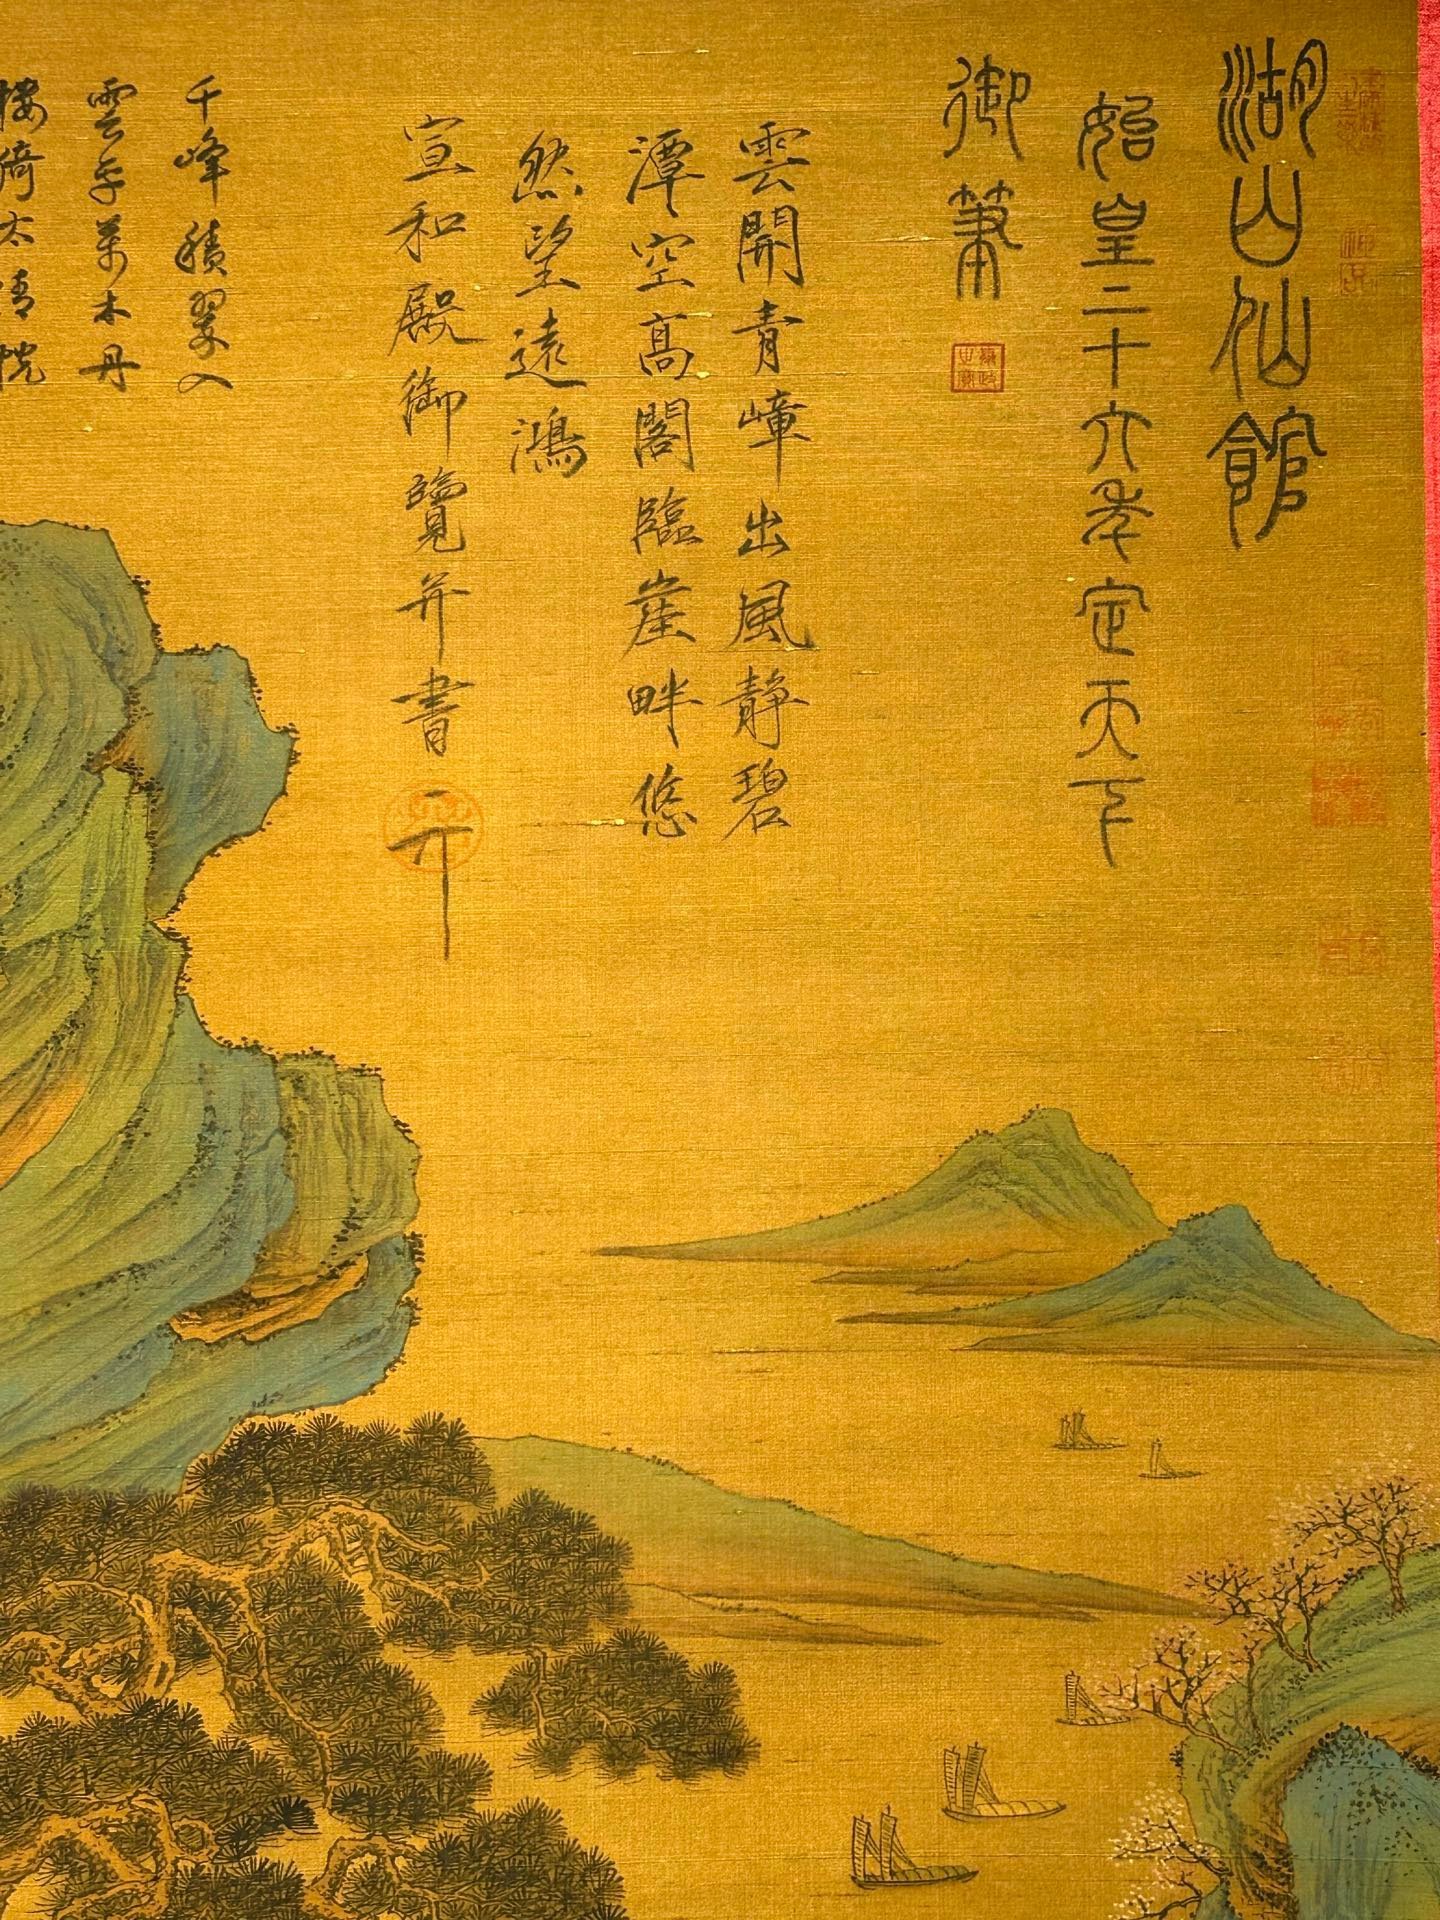 湖山仙館
始皇二十六年定天下
御筆
雲開青嶂出風靜碧
潭空高閣臨崖畔悠
然望遠鴻
宣和殿御覽并書
千峰積翠入
雲平萬木丹
樓倚太清恍